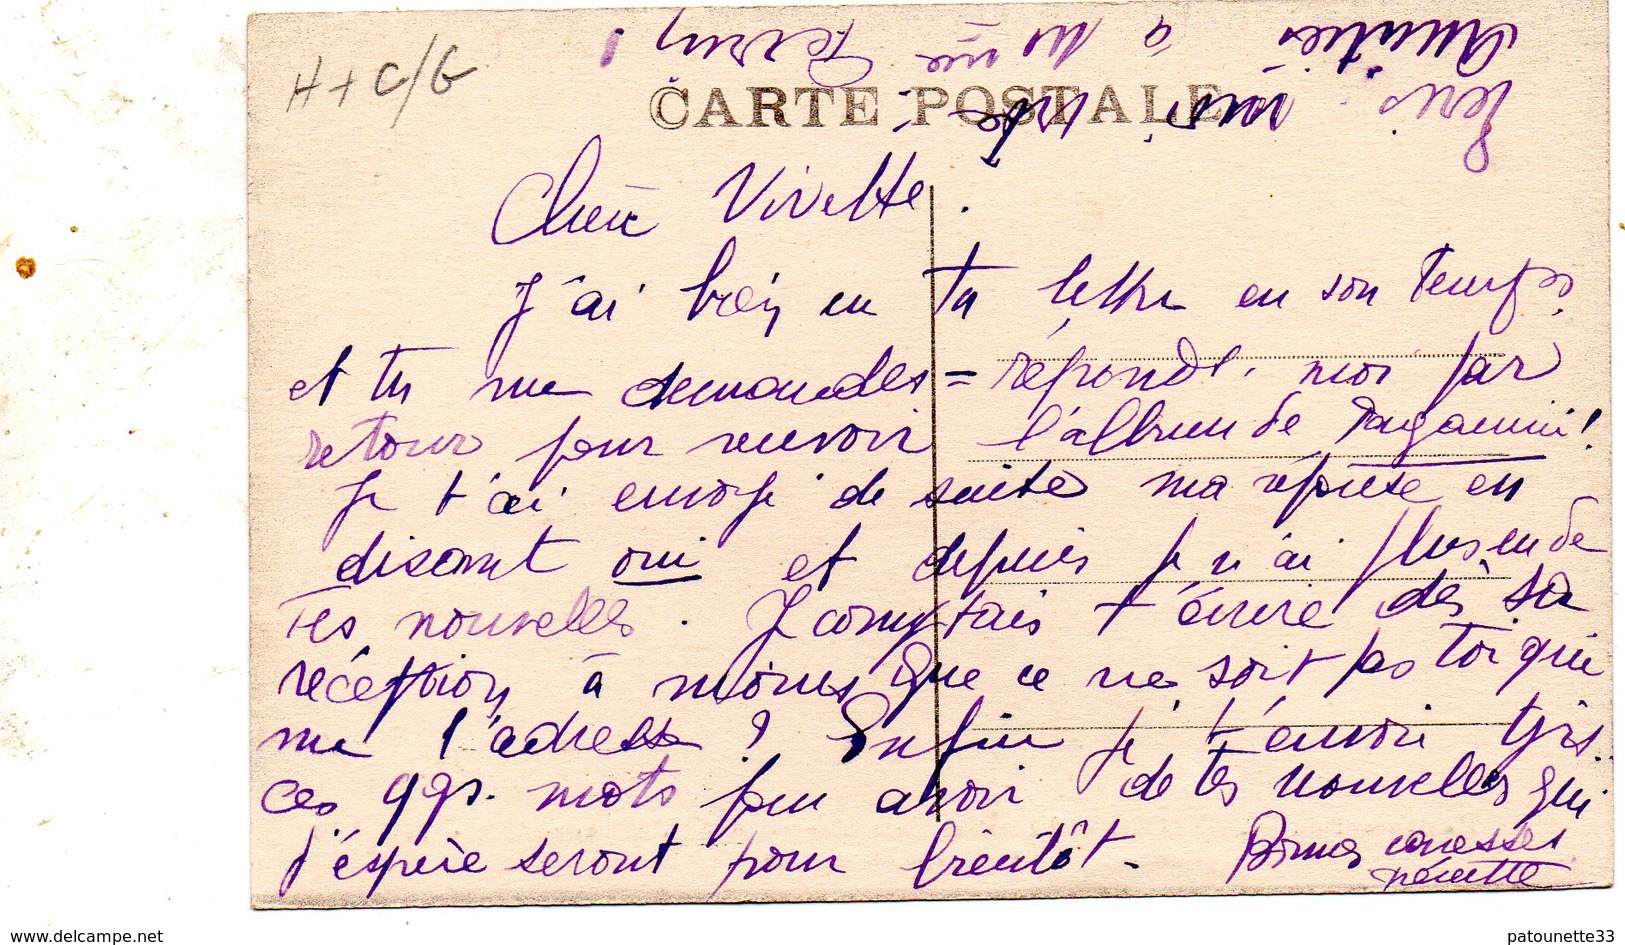 H + C/G
CARTE POSTALE
Chère Vivette.
J'ai bien eu ta lettre en son temps,
et tu me demandes = réponds. moi par
retour pour recevoir l'album de Paganini!
Je t'ai envoyé de suite ma réponse en
disant oui et depuis je n'ai plus eu de
tes nouvelles. Je comptais t'écrire dès sa
réception à moins que ce ne soit pas toi qui
me l'adresse ? Enfin je t'envoie tjrs
ces qqs. mots pour avoir de tes nouvelles qui
j'espère seront pour bientôt. Bonnes caresses
Amitiés à
delcampe.net
patounette33